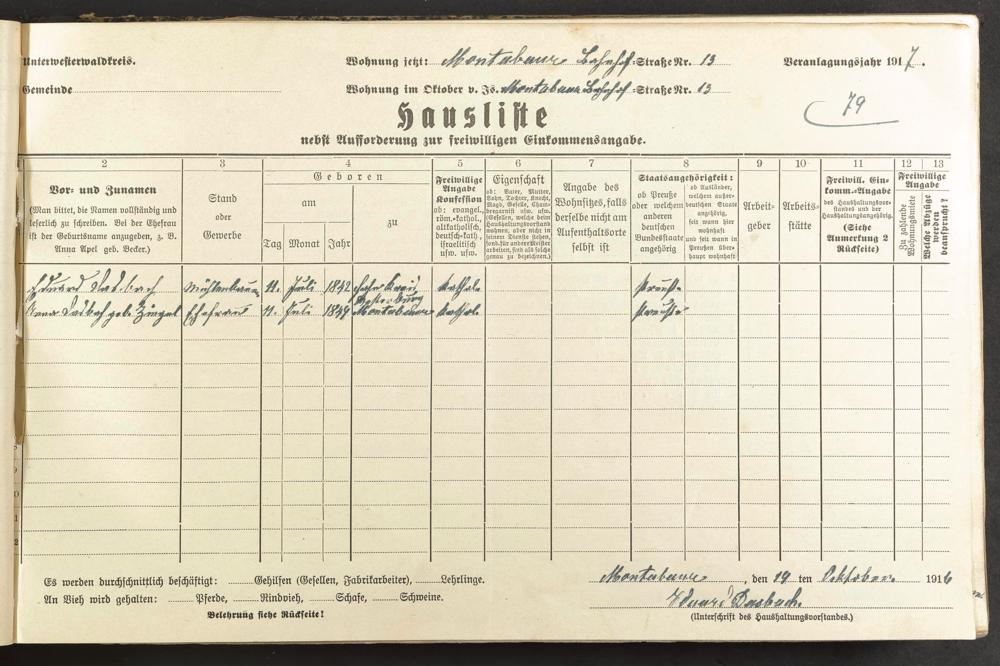 Unterwesterwaldkreis. Wohnung jetzt: Montabaur Bahnhof-Straße Nr. 13 Veranlagungsjahr 1917.
Gemeinde Wohnung im Oktober v. Js. Montabaur Bahnhof-Straße Nr. 13
79
Hausliste
nebst Aufforderung zur freiwilligen Einkommensangabe.
2 3 4 5 6 7 8 9 10 11 12 13
Vor- und Zunamen
(Man bittet, die Namen vollständig und
leserlich zu schreiben. Bei der Ehefrau
ist der Geburtsname anzugeben, z. B.
Anna Apel geb. Becker.)
Stand
oder
Gewerbe
Geboren
am
Tag Monat Jahr
zu
Freiwillige
Angabe
Konfession
ob: evangel.,
röm.-kathol.,
altkatholisch,
deutsch-kath.,
israelitisch
usw. usw.
Eigenschaft
ob: Vater, Mutter,
Sohn, Tochter, Knecht,
Magd, Geselle, Cham-
bregarnist usw. usw.
(Gesellen, welche beim
Haushaltungsvorstand
wohnen, aber nicht in
seinem Dienste stehen,
sond. für andere Meister
arbeiten, sind als solche
genau zu bezeichnen.)
Angabe des
Wohnsitzes, falls
derselbe nicht am
Aufenthaltsorte
selbst ist
Staatsangehörigkeit:
ob Preuße
oder welchem
anderen
deutschen
Bundesstaate
angehörig
ob Ausländer,
welchem außer-
deutschen Staate
angehörig,
seit wann hier
wohnhaft
und seit wann in
Preußen über-
haupt wohnhaft
Arbeit-
geber
Arbeits-
stätte
Freiwill. Ein-
komm.-Angabe
des Haushaltungsvor-
standes und der
Haushaltungsangehörig.
(Siehe
Anmerkung 2
Rückseite)
Freiwillige
Angabe
Zu zahlende
Wohnungsmiete
Welche Abzüge
werden
beansprucht?
Eduard Dasbach 11. Juli 1842 Kreis kathol. Preuße
Westerburg
Anna Dasbach geb. Ehefrau 11. Juli Montabaur kathol. Preuße
Es werden durchschnittlich beschäftigt: Gehilfen (Gesellen, Fabrikarbeiter), Lehrlinge.
An Vieh wird gehalten: Pferde, Rindvieh, Schafe, Schweine.
Belehrung siehe Rückseite!
Montabaur, den 19 ten Oktober 1916
Eduard Dasbach.
(Unterschrift des Haushaltungsvorstandes.)